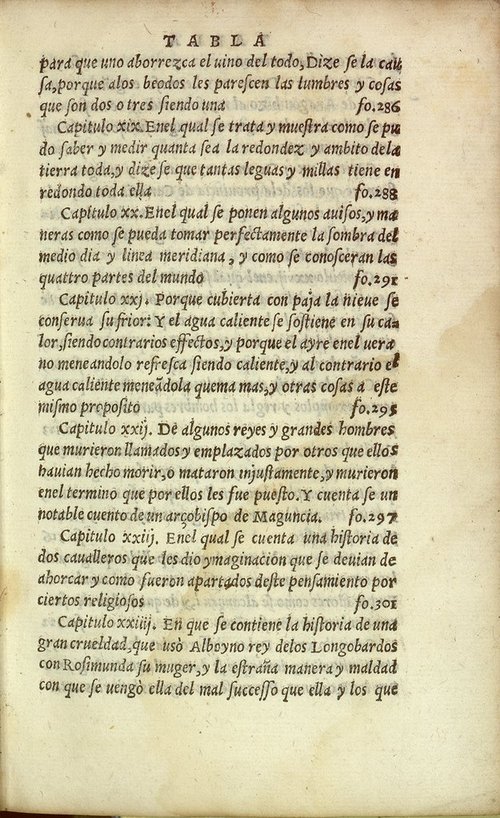 TABLA
para que uno aborrezca el uino del todo, Dize se la cau
sa, porque alos beodos les parescen las lumbres y cosas
que son dos o tres siendo una fo.286
Capitulo xix. Enel qual se trata y muestra como se pu
do saber y medir quanta sea la redondez y ambito dela
tierra toda, y dize se que tantas leguas y millas tiene en
redondo toda ella fo.288
Capitulo xx. Enel qual se ponen algunos auisos, y ma
neras como se pueda tomar perfectamente la sombra del
medio dia y linea meridiana, y como se conosceran las
quattro partes del mundo fo.291
Capitulo xxj. Porque cubierta con paja la nieue se
conserua su frior: Y el agua caliente se sostiene en su ca-
lor, siendo contrarios effectos, y porque el ayre enel uera
no meneandolo refresca siendo caliente, y al contrario el
agua caliente meneãdola quema mas, y otras cosas a este
mismo proposito fo.295
Capitulo xxij. De algunos reyes y grandes hombres
que murieron llamados y emplazados por otros que ellos
hauian hecho morir, o mataron injustamente, y murieron
enel termino que por ellos les fue puesto. Y cuenta se un
notable cuento de un arçobispo de Maguncia. fo.297
Capitulo xxiij. Enel qual se cuenta una historia de
dos caualleros que les dio ymaginacion que se deuian de
ahorcar y como fueron apartados deste pensamiento por
ciertos religiosos fo.301
Capitulo xxiiij. En que se contiene la historia de una
gran crueldad, que usò Alboyno rey delos Longobardos
con Rosimunda su muger, y la estraña manera y maldad
con que se uengò ella del mal successo que ella y los que